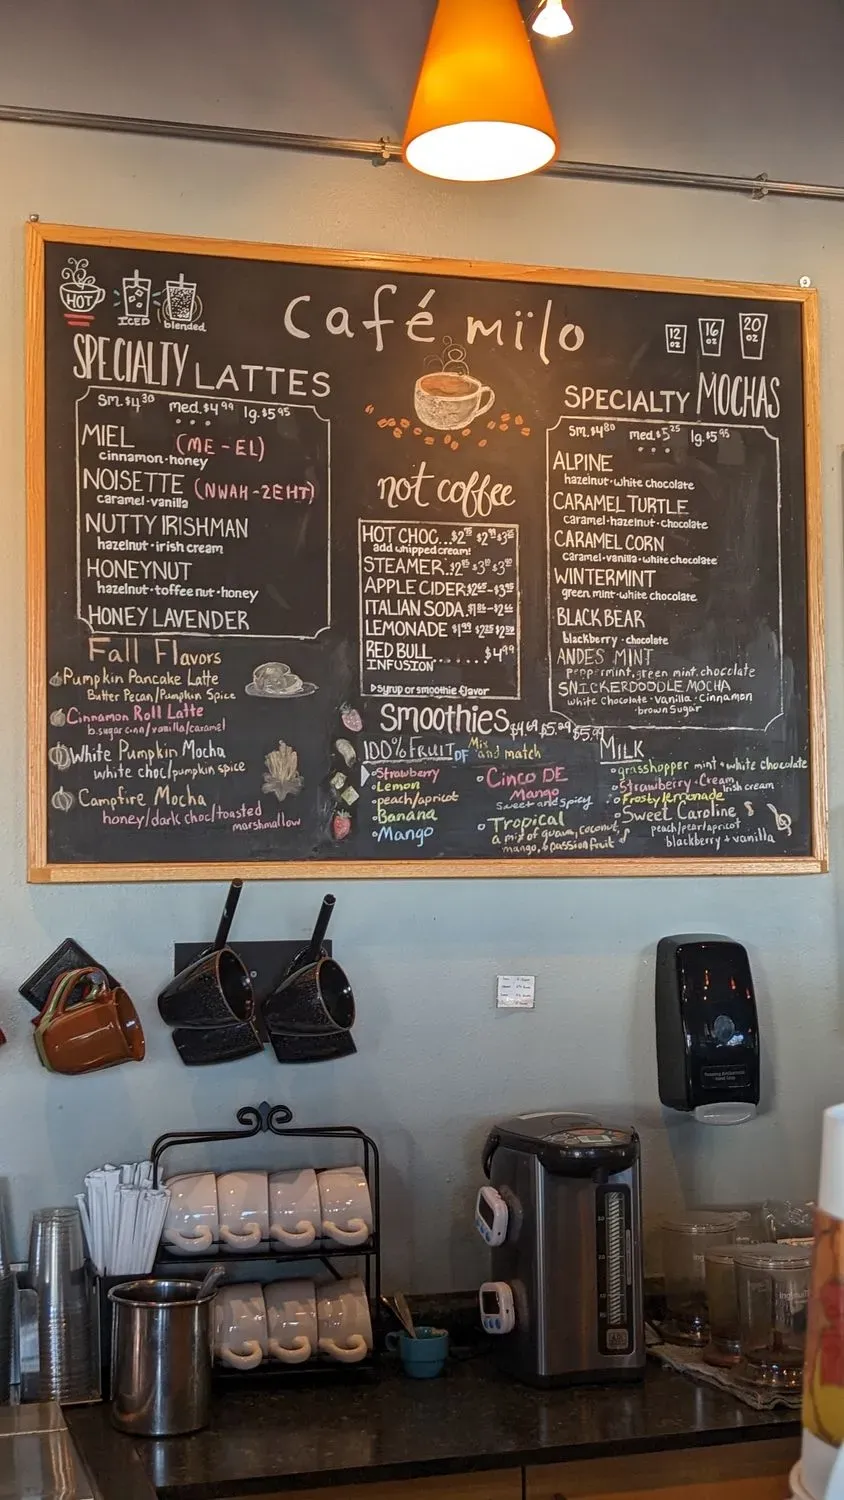 HOT
ICED
blended
café mïlo
12 oz
16 oz
20 oz
SPECIALTY LATTES
sm. $4.30 med. $4.99 lg. $5.95
MIEL (ME-EL)
cinnamon·honey
NOISETTE (NWAH-ZEHT)
caramel·vanilla
NUTTY IRISHMAN
hazelnut·irish cream
HONEYNUT
hazelnut·toffee nut·honey
HONEY LAVENDER
Fall Flavors
Pumpkin Pancake Latte
Butter Pecan/Pumpkin Spice
Cinnamon Roll Latte
b.sugar cinn/vanilla/caramel
White Pumpkin Mocha
white choc/pumpkin spice
Campfire Mocha
honey/dark choc/toasted
marshmallow
not coffee
HOT CHOC...$2.75 $2.99
add whipped cream!
STEAMER
APPLE CIDER $2.65-$3.95
ITALIAN SODA
LEMONADE $1.99 $2.25 $2.50
RED BULL
INFUSION......$4.99
syrup or smoothie flavor
SPECIALTY MOCHAS
sm. $4.80 med. $5.25 lg. $5.95
ALPINE
hazelnut·white chocolate
CARAMEL TURTLE
caramel·hazelnut·chocolate
CARAMEL CORN
caramel·vanilla·white chocolate
WINTERMINT
green mint·white chocolate
BLACK BEAR
blackberry·chocolate
ANDES MINT
peppermint, green mint, chocolate
SNICKERDOODLE MOCHA
white chocolate·vanilla·cinnamon
·brown sugar
Smoothies $4.69 $5.29 $5.99
100% FRUIT Mix and match
Strawberry
Lemon
peach/apricot
Banana
Mango
CINCO DE
Mango
Sweet and spicy
Tropical
a mix of guava, coconut,
mango, & passion fruit
MILK
grasshopper mint + white chocolate
Strawberry·Cream
Irish cream
Frosty lemonade
Sweet Caroline
peach/pear/apricot
blackberry + vanilla